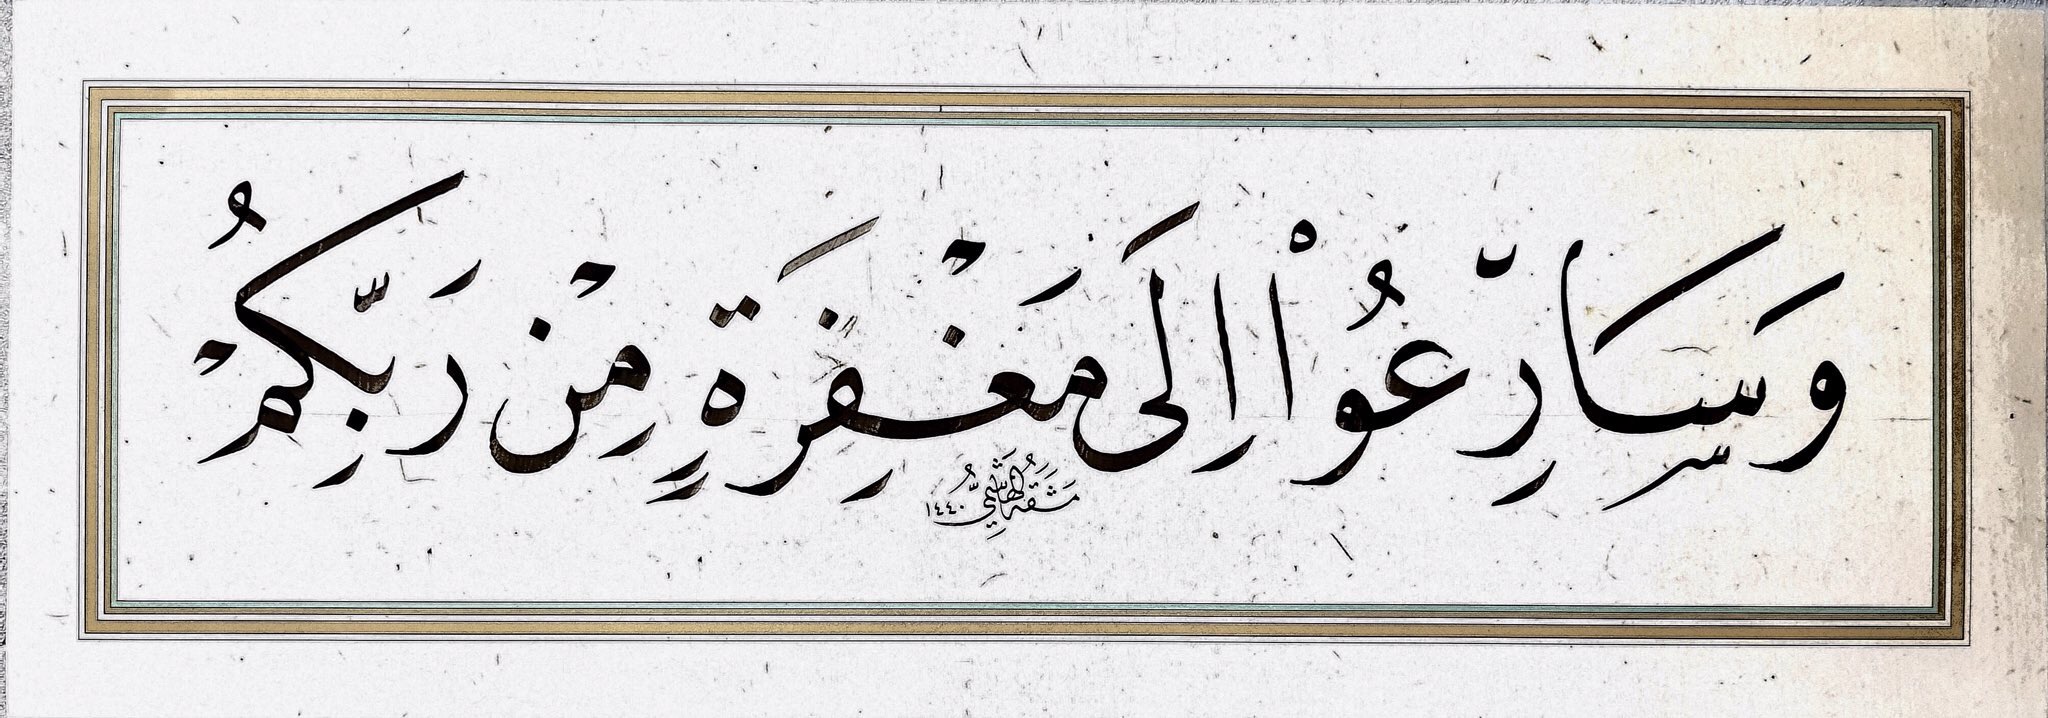 وَسَارِعُوْا اِلَى مَغْفِرَةٍ مِنْ رَبِّكُمْ
مَشَقَهُ الهَاشِمِيُّ ١٤٤٠